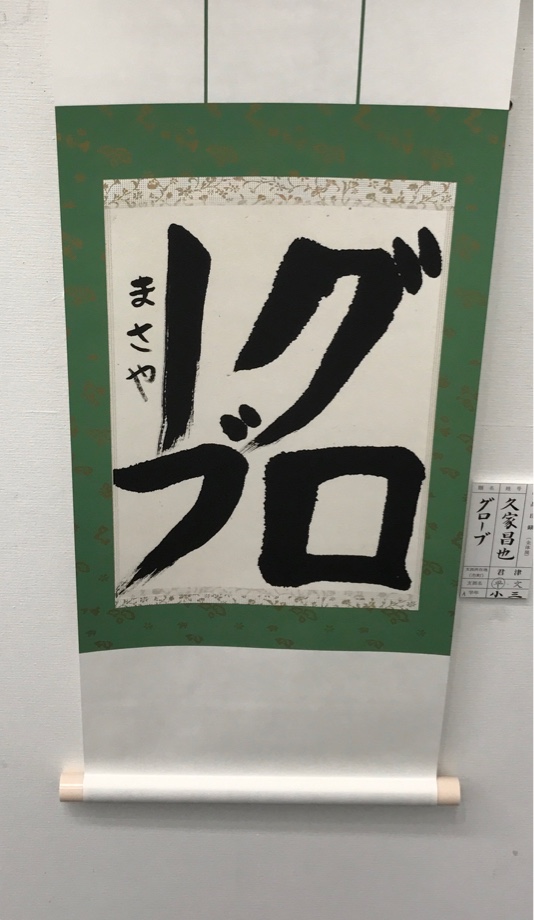 グロ
ーブ
まさや
久家昌也
グローブ
君津
小三